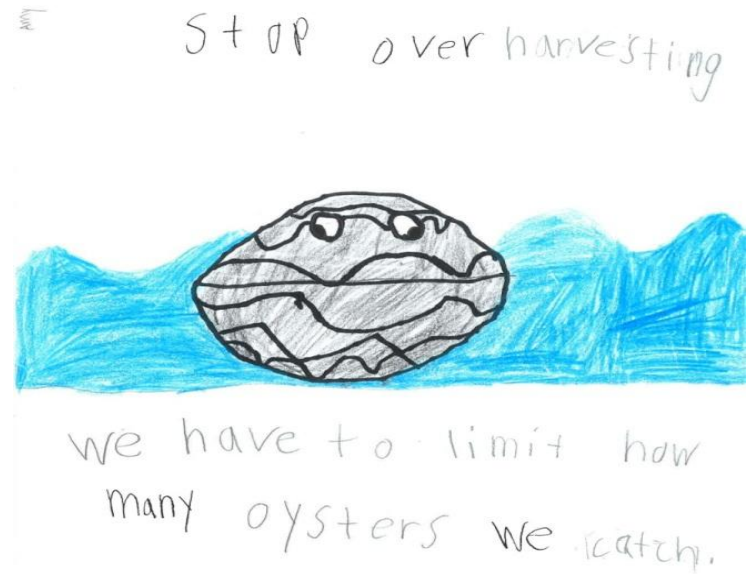 Amy
Stop over harvesting
we have to limit how
many oysters we catch.